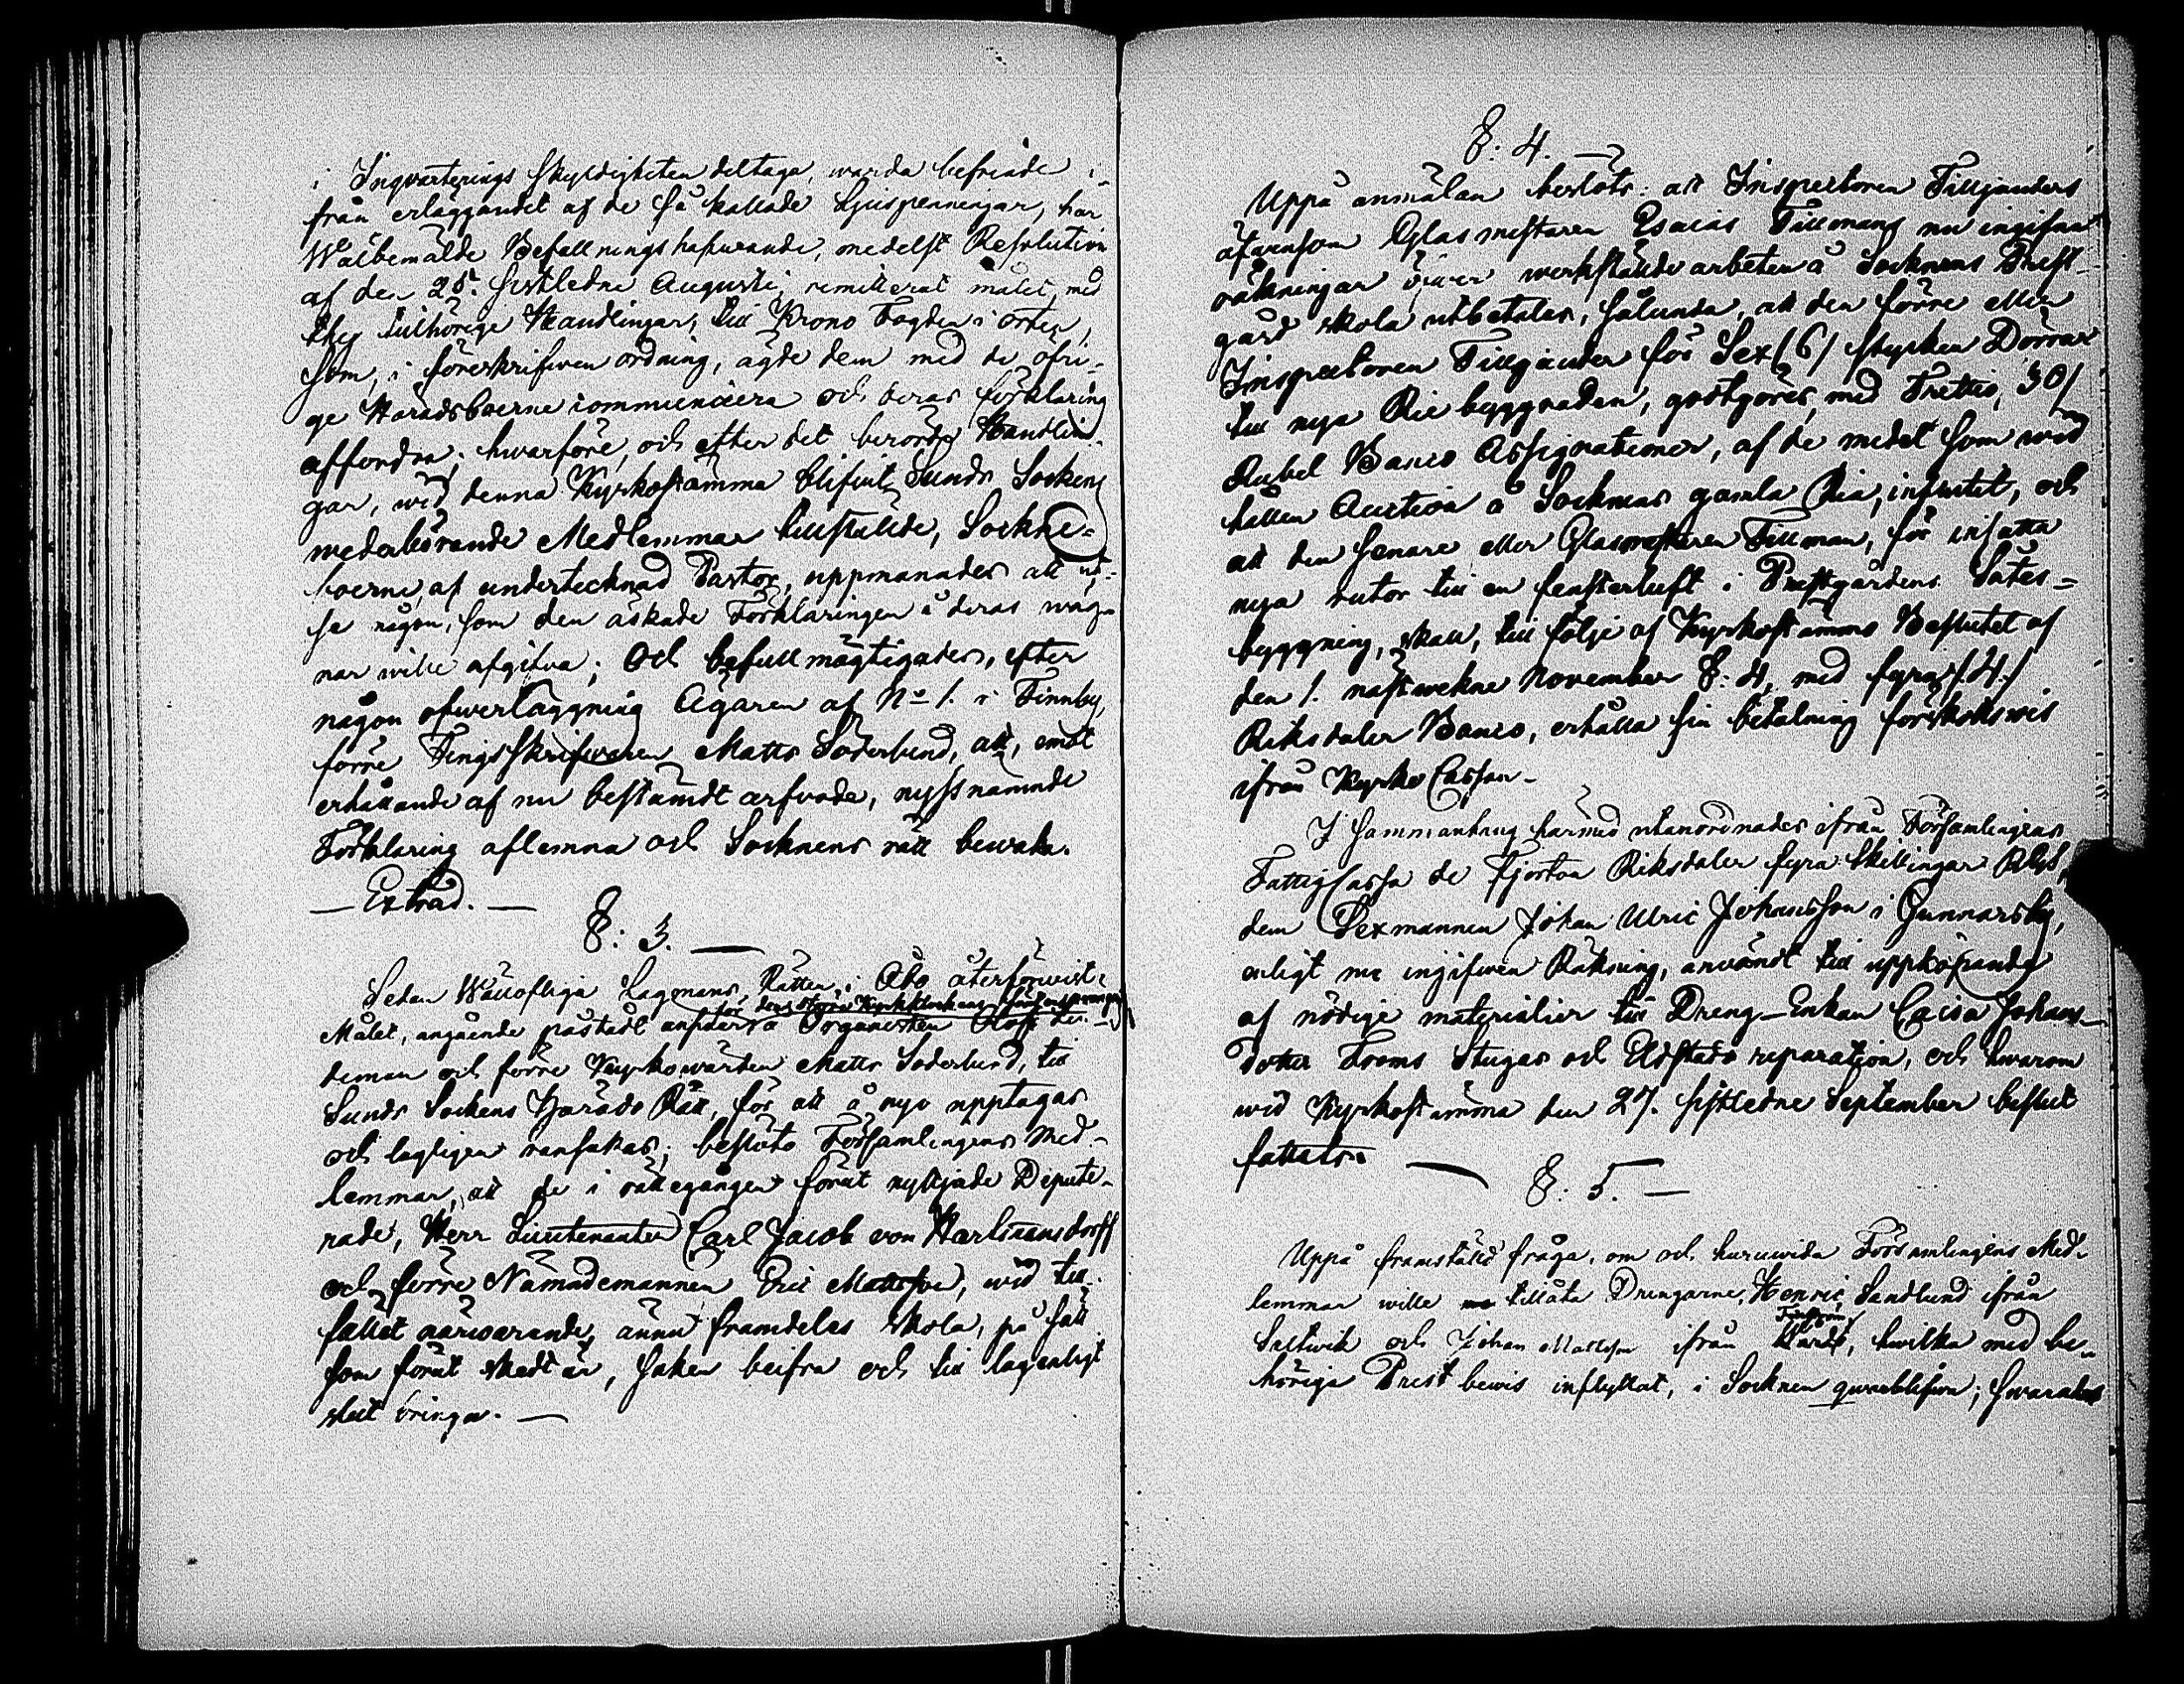 i Inqvarterings skyldigheten deltaga, warda befriade i-
från erläggandet af de så kallade Ljuspenningar, har
Wälbemälde Befallningshafwande, medelst Resolution
af den 25. sistledne Augusti, remitterat målet, med
thy tillhörige Handlingar, till Krono Fogden i orten,
som, i föreskrifwen ordning, ägde dem med de öfri-
ge Häradsboerne communicera och deras förklaring
affordra; hwarföre, och efter det berörde Handlin-
gar, wid denna Kyrkostämma blifwit Sunds Sockens
wederbörande Medlemmar tillstälde, Sockne-
boerne, af undertecknad Pastor, uppmanades att ut-
se någon, som den äskade Förklaringen å deras wäg-
nar wille afgifva; Och befullmägtigades, efter
någon öfwerläggning Ägaren af No 1. i Finnby,
förre Tingsskrifwaren Matts Söderlund, att, emot
erhållande af nu bestämdt arfvode, nyssnämnde
Förklaring aflemna och Socknens rätt bewaka.
— Extrad. —
§: 3. —
Sedan Wällofliga Lagmans Rätten i Åbo återförwist
för den större Kyrkklockans
Målet, angående påstådt answar å Organisten Olof Lin-
deman och förre Kyrkowärden Matts Söderlund, till
Sunds Sockens Härads Rätt, för att å nyo upptagas
och lagligen ransakas; beslöto Församlingens Med-
lemmar, att de i rättegången förut nyttjade Depute-
rade, Herr Lieutenanten Carl Jacob von Hartmansdorff
och förre Nämndemannen Eric Mattsson, wid till-
fället närwarande, ännu framdeles skola, på sätt
som förut skedt är, saken beifra och till lagenligt
slut bringa. —
§: 4. —
Uppå anmälan beslöts: att Inspectoren Tilljanders
äfwensom Glasmästaren Esaias Tillmans nu ingifna
räkningar öfwer werkstälde arbeten å Socknens Prest-
gård skola utbetalas, sålunda, att den förre eller
Inspectoren Tilljander för Sex (6) stycken Dörrar
till nya Rie byggnaden, godtgöres, med Trettio, 30/
Rubel Banco Assignationer, af de medel som wid
hållen Auction å Socknens gamla Ria, influtit, och
att den senare eller Glasmästaren Tillman, för insatta
nya rutor till en fensterluft i Prestgårdens Sätes-
byggning, skall, till följe af Kyrkostämmo Beslutet af
den 1. nästwekne November §: 4, med fyra /4./
Riksdaler Banco, erhålla sin betalning förskottswis
ifrån Kyrko Cassan.
I sammanhang härmed utanordnades ifrån Församlingens
Fattig Cassa de fjorton Riksdaler fyra Skillingar Rgs,
dem Sexmannen Johan Ulric Johansson i Gunnarsby,
enligt nu ingifwen Räkning, användt till uppköpande
af nödige materialier till Dreng-Enkan Caisa Johans-
dotter Froms Stugas och Eldstads reparation, och hwarom
wid Kyrkostämma den 27. sistledne September beslut
fattats. —
§: 5. —
Uppå framstäld fråga, om och huruwida Församlingens Med-
lemmar wille tillåta Drengarne, Henric Sandlund ifrån
Saltwik och Johan Mattsson ifrån, hwilka med be-
hörige Prest bewis inflyttat, i Socknen qwarblifwa; swarades